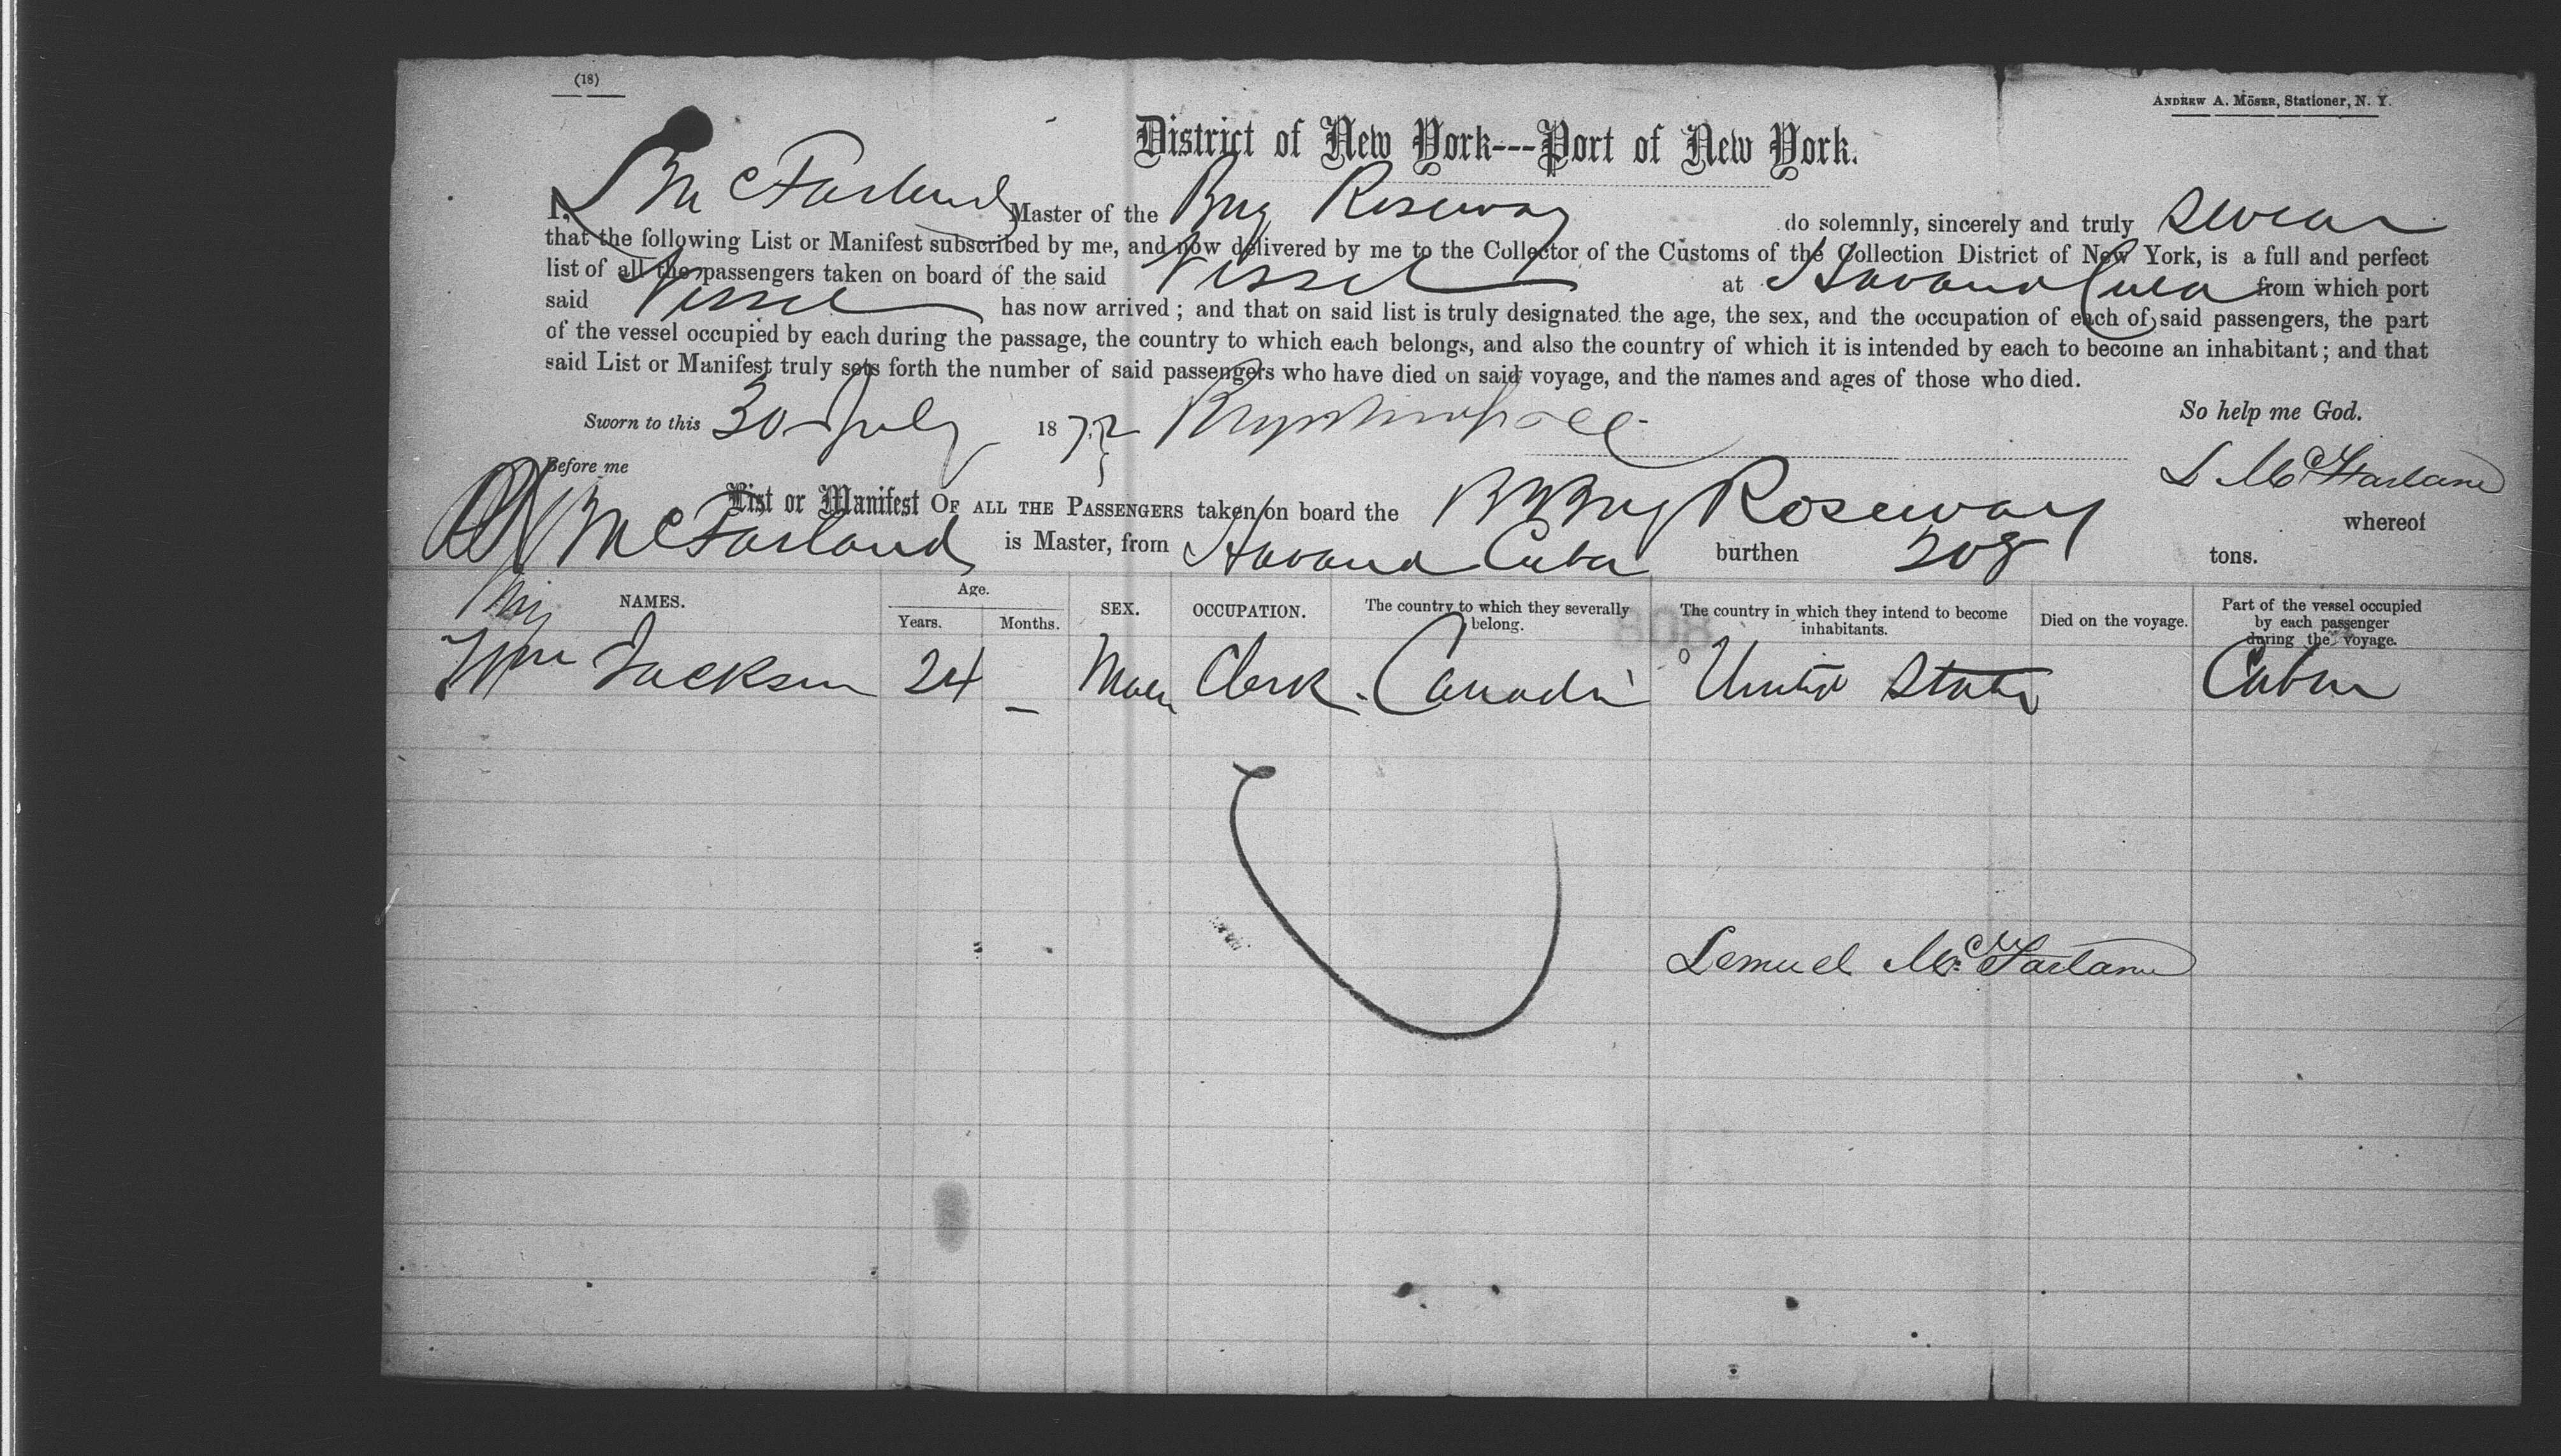 (18)
ANDREW A. MÖSER, Stationer, N. Y.
District of New York---Port of New York.
I, L McFarland Master of the Brig Roseway do solemnly, sincerely and truly swear
that the following List or Manifest subscribed by me, and now delivered by me to the Collector of the Customs of the Collection District of New York, is a full and perfect
list of all the passengers taken on board of the said Vessel at Havana Cuba from which port
said Vessel has now arrived; and that on said list is truly designated the age, the sex, and the occupation of each of said passengers, the part
of the vessel occupied by each during the passage, the country to which each belongs, and also the country of which it is intended by each to become an inhabitant; and that
said List or Manifest truly sets forth the number of said passengers who have died on said voyage, and the names and ages of those who died.
Sworn to this 30 July 1872 So help me God.
Before me L McFarlane
List or Manifest OF ALL THE PASSENGERS taken on board the Brig Roseway whereof
McFarland is Master, from Havana Cuba burthen 208 tons.
NAMES. Age. Years. Months. SEX. OCCUPATION. The country to which they severally belong. The country in which they intend to become inhabitants. Died on the voyage. Part of the vessel occupied by each passenger during the voyage.
Wm Jackson 24 – Male Clerk. Canada United States Cabin
Lemuel McFarlane